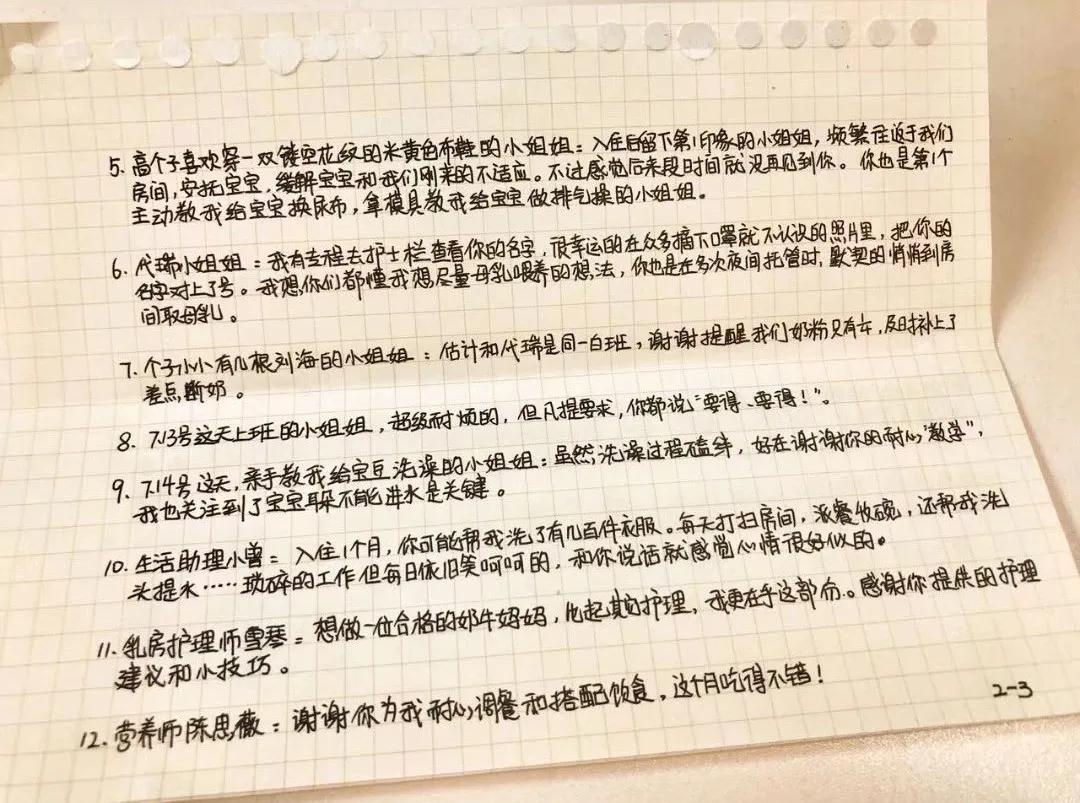 5. 高个子喜欢穿一双镂空花纹的米黄色布鞋的小姐姐：入住后留下第1印象的小姐姐，频繁往返于我们
房间，安抚宝宝，缓解宝宝和我们刚来的不适应。不过感觉后来段时间就没再见到你。你也是第1个
主动教我给宝宝换尿布，拿模具教我给宝宝做排气操的小姐姐。
6. 代瑞小姐姐：我有专程去护士栏查看你的名字，很幸运的在众多摘下口罩就不认识的照片里，把你的
名字对上了号。我想你们都懂我想尽量母乳喂养的想法，你也是在多次夜间托管时，默契的悄悄到房
间取母乳。
7. 个子小小有几根刘海的小姐姐：估计和代瑞是同一白班，谢谢提醒我们奶粉只有, 及时补上了
差点断奶。
8. 7.13号这天上班的小姐姐，超级耐烦的，但凡提要求，你都说“要得、要得！”。
9. 7.14号这天，亲手教我给宝豆洗澡的小姐姐：虽然洗澡过程磕绊，好在谢谢你的耐心“教学”，
我也关注到了宝宝耳朵不能进水是关键。
10. 生活助理小曾：入住1个月，你可能帮我洗了有几百件衣服。每天打扫房间，派餐收碗，还帮我洗
头提水……琐碎的工作但每日依旧笑呵呵的，和你说话就感觉心情很好似的。
11. 乳房护理师雪琴：想做一位合格的奶牛妈妈，比起其它护理，我更在乎这部份。感谢你提供的护理
建议和小技巧。
12. 营养师陈思薇：谢谢你为我耐心调餐和搭配饮食，这个月吃得不错！
2-3